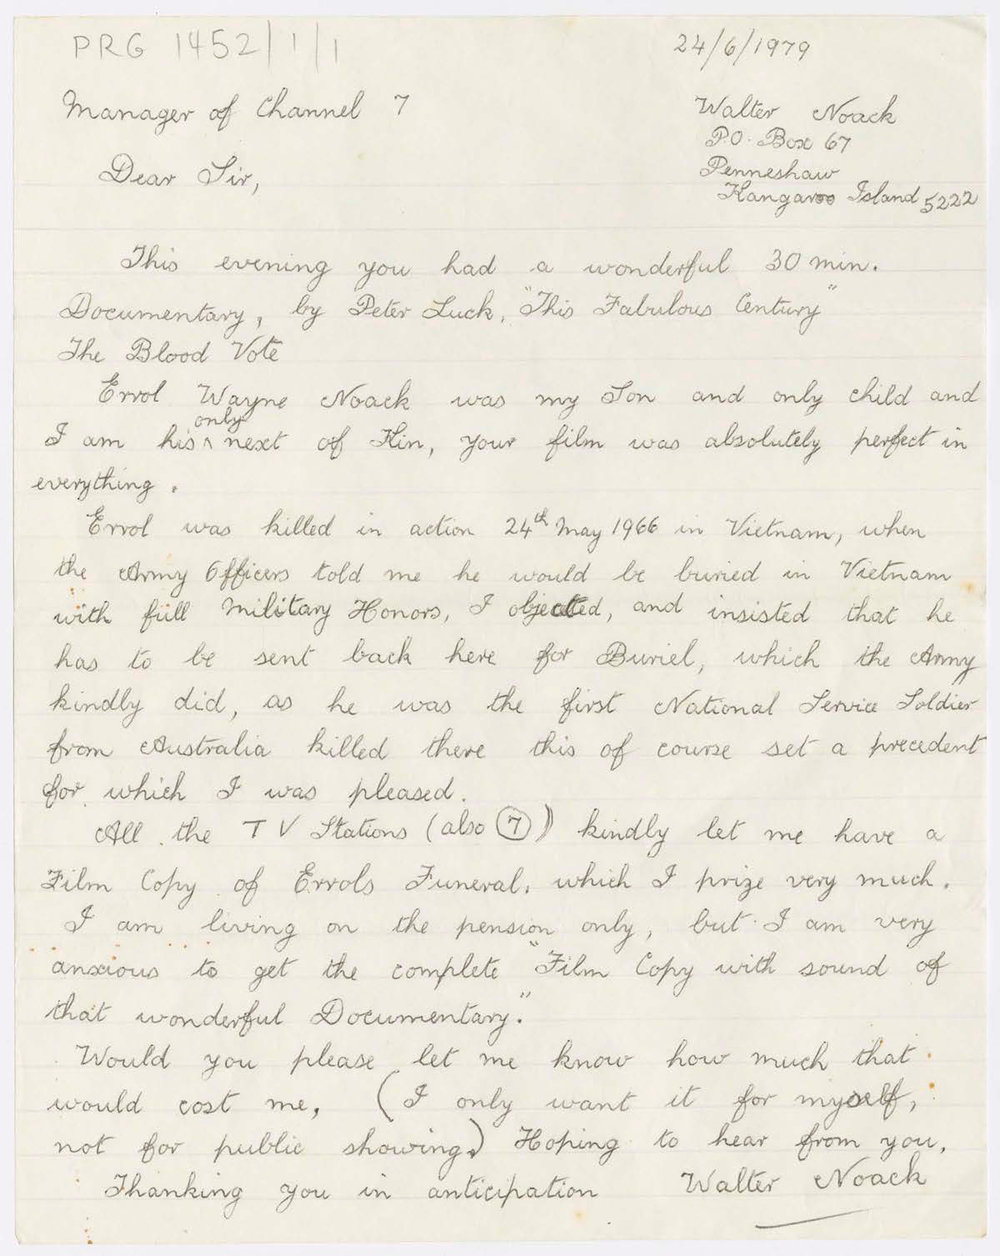 PRG 1452/1/1
24/6/1979
Manager of Channel 7
Walter Noack
P.O. Box 67
Penneshaw
Kangaroo Island 5222
Dear Sir,
This evening you had a wonderful 30 min.
Documentary, by Peter Luck, "This Fabulous Century"
The Blood Vote
Errol Wayne Noack was my Son and only child and
I am his only next of Kin, your film was absolutely perfect in
everything.
Errol was killed in action 24th May 1966 in Vietnam, when
the Army Officers told me he would be buried in Vietnam
with full Military Honors, I objected, and insisted that he
has to be sent back here for Buriel, which the Army
kindly did, as he was the first National Service Soldier
from Australia killed there this of course set a precedent
for which I was pleased.
All the TV Stations (also 7) kindly let me have a
Film Copy of Errols Funeral, which I prize very much.
I am living on the pension only, but I am very
anxious to get the complete "Film Copy with sound of
that wonderful Documentary."
Would you please let me know how much that
would cost me, (I only want it for myself,
not for public showing.) Hoping to hear from you,
Thanking you in anticipation Walter Noack